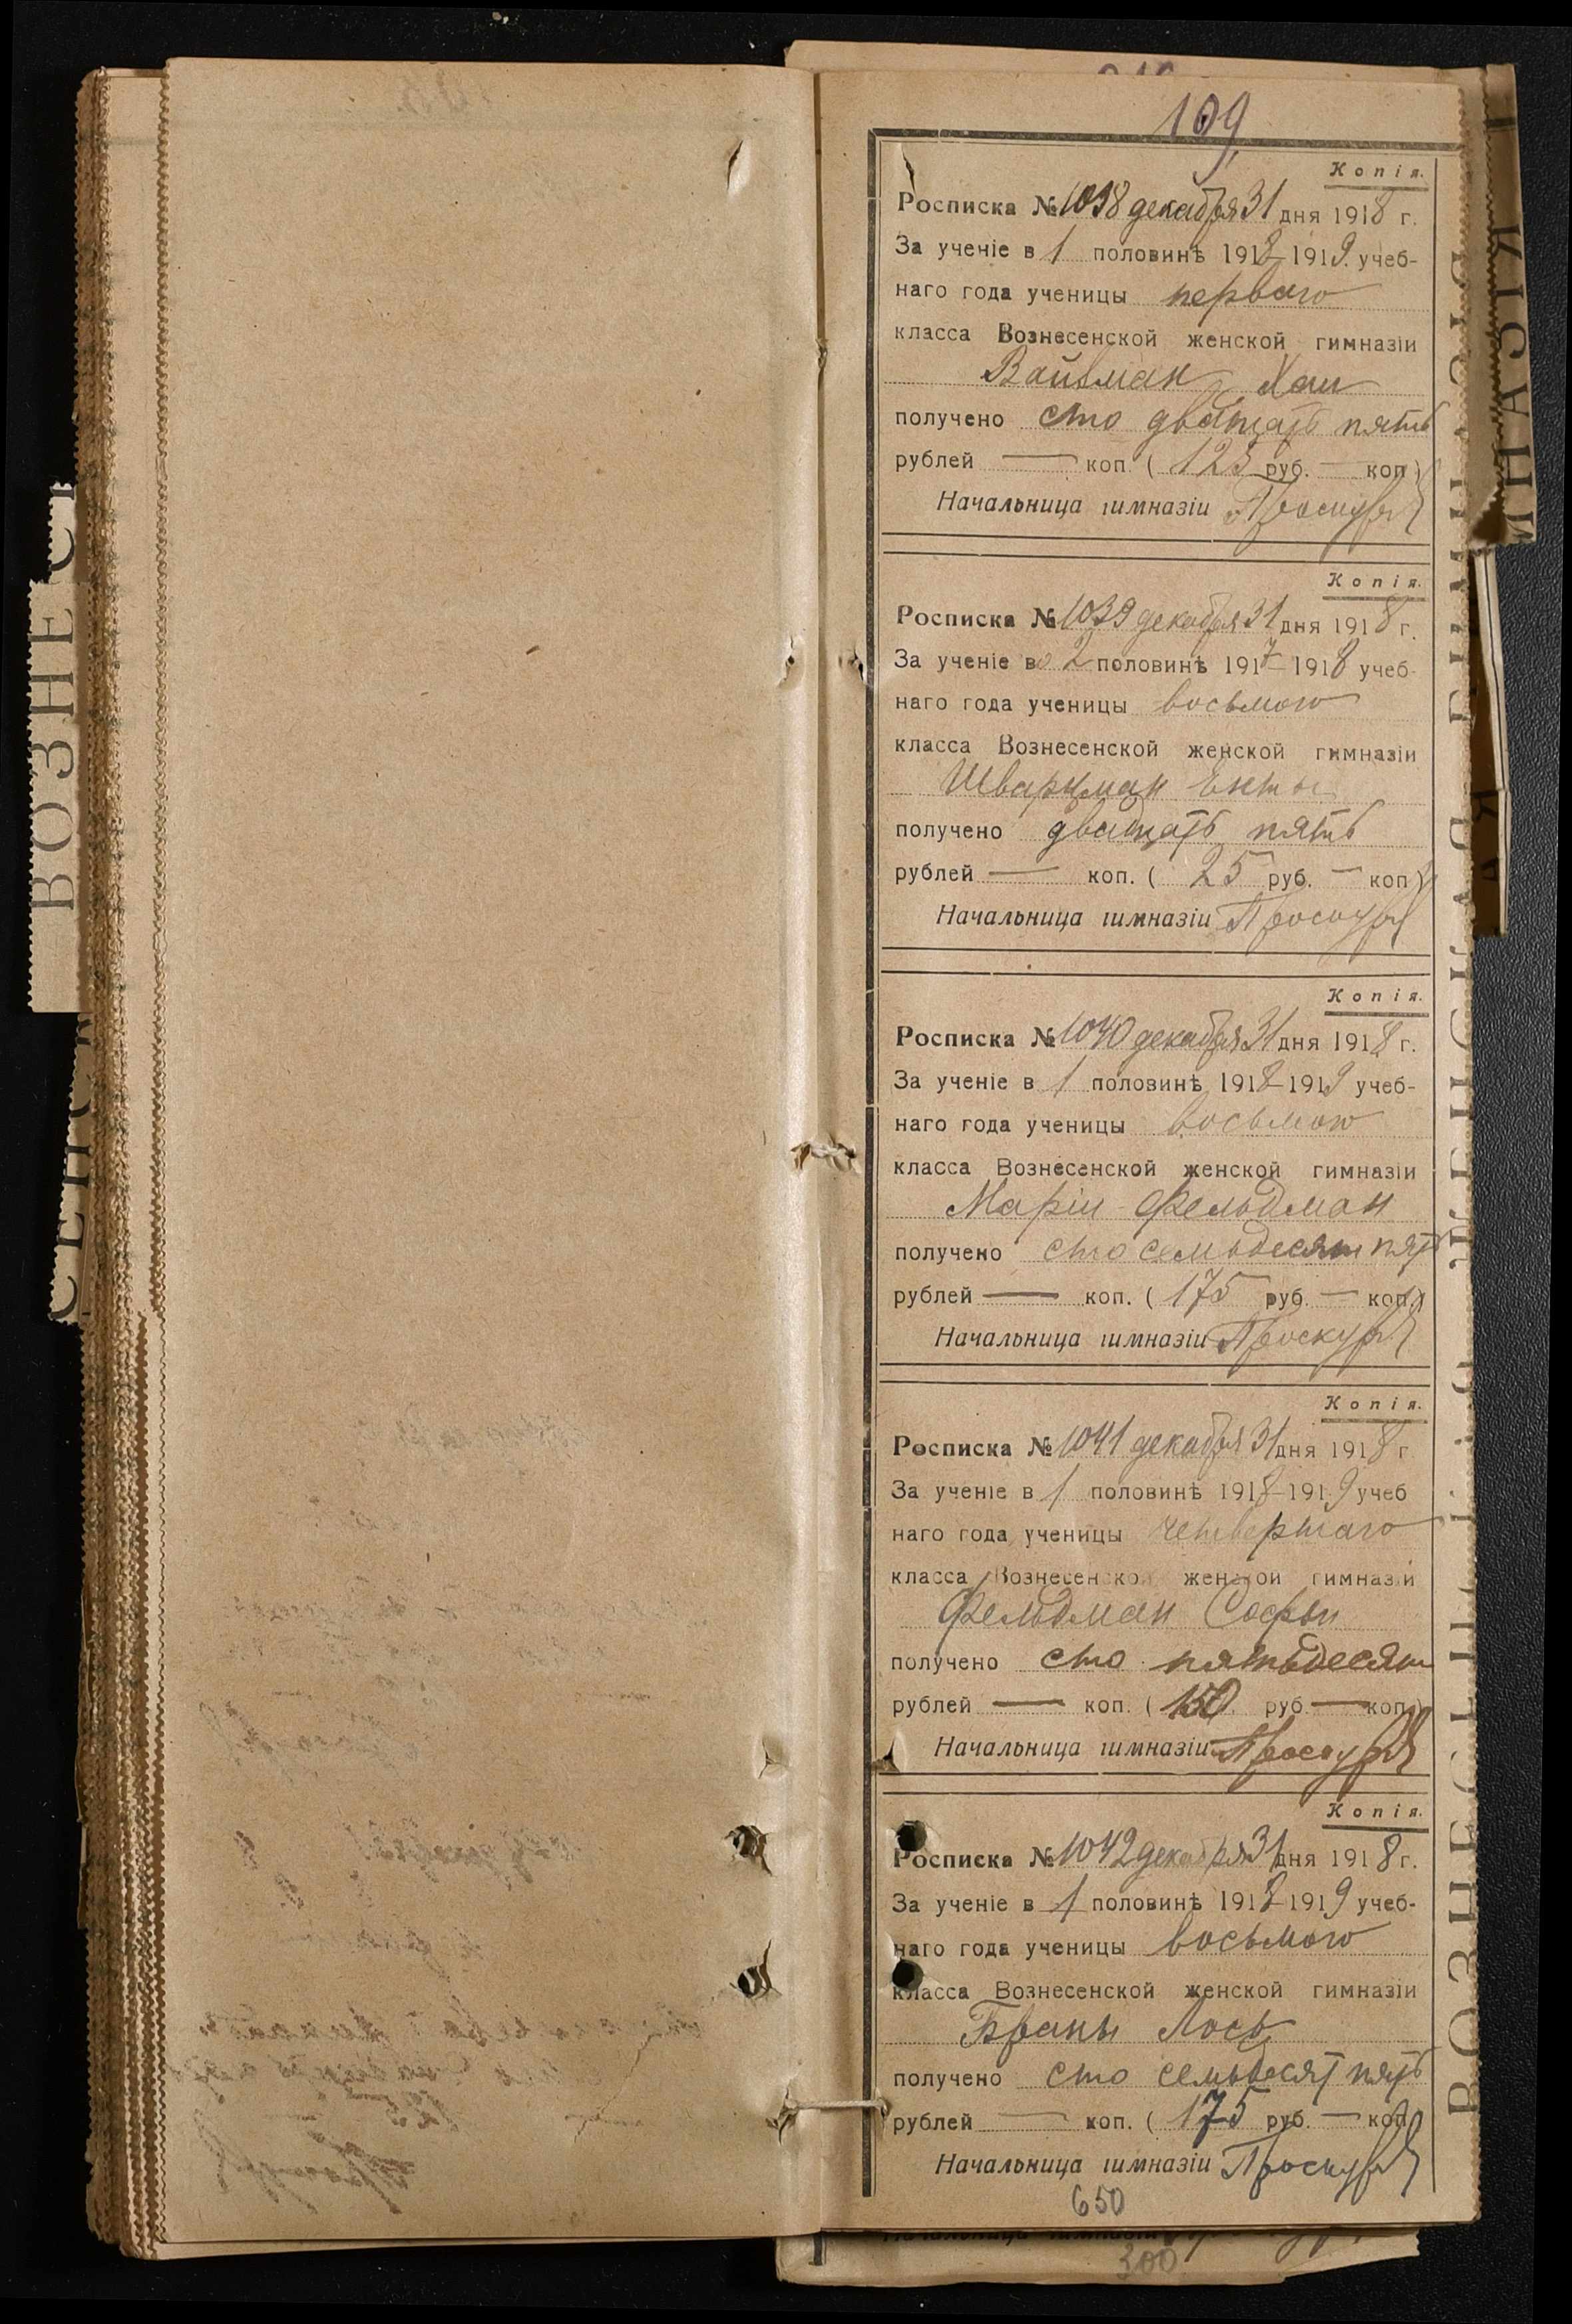 109
Копія.
Росписка № 1038 декабря 31 дня 1918 г.
За ученіе в 1 половинѣ 1918-1919 учеб-
наго года ученицы перваго
класса Вознесенской женской гимназіи
Вайсман Хаи
получено сто двадцать пять
рублей — коп. ( 125 руб. — коп.)
Начальница гимназіи
Копія.
Росписка № 1039 декабря 31 дня 1918 г.
За ученіе во 2 половинѣ 1917-1918 учеб-
наго года ученицы восьмого
класса Вознесенской женской гимназіи
Шварцман
получено двадцать пять
рублей — коп. ( 25 руб. — коп.)
Начальница гимназіи
Копія.
Росписка № 1040 декабря 31 дня 1918 г.
За ученіе в 1 половинѣ 1918-1919 учеб-
наго года ученицы восьмого
класса Вознесенской женской гимназіи
Маріи Фельдман
получено сто семьдесят пять
рублей — коп. ( 175 руб. — коп.)
Начальница гимназіи
Копія.
Росписка № 1041 декабря 31 дня 1918 г
За ученіе в 1 половинѣ 1918-1919 учеб
наго года ученицы четвертаго
класса Вознесенской женской гимназіи
Фельдман Софьи
получено сто пятьдесят
рублей — коп. ( 150 руб — коп.)
Начальница гимназіи
Копія.
Росписка № 1042 декабря 31 дня 1918 г.
За ученіе в 1 половинѣ 1918-1919 учеб-
наго года ученицы восьмого
класса Вознесенской женской гимназіи
Браны Лось
получено сто семьдесят пять
рублей — коп. ( 175 руб. — коп.)
Начальница гимназіи
650
300
ВОЗНЕС